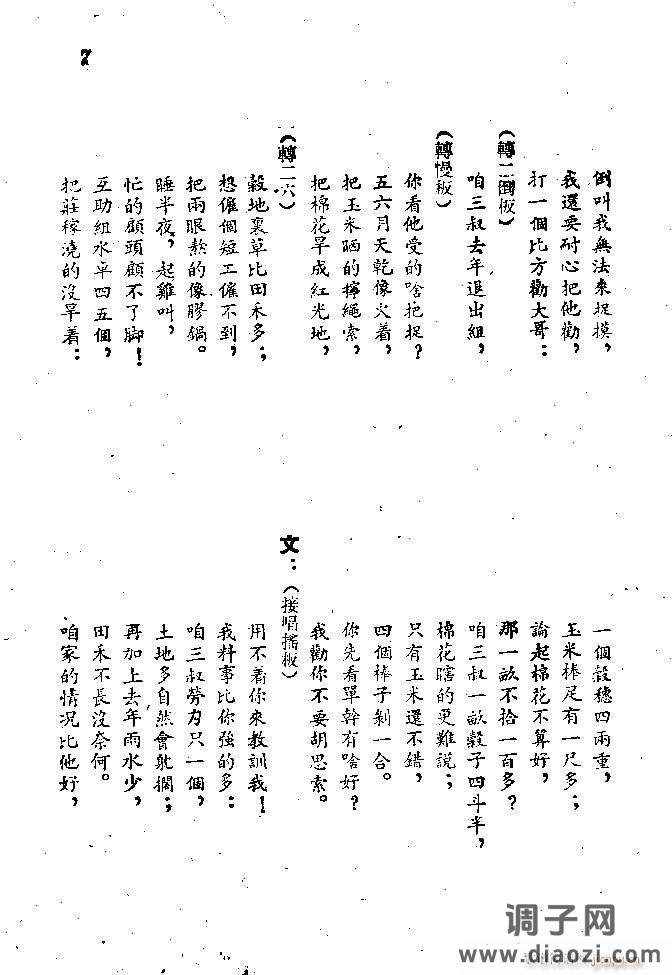 7
倒叫我無法來捉摸，
我還要耐心把他勸，
打一個比方勸大哥：
（轉二倒板）
咱三叔去年退出組，
（轉慢板）
你看他受的啥拖捉？
五六月天乾像火着，
把玉米晒的擰繩索，
把棉花旱成紅光地，
（轉二六）
穀地裏草比田禾多；
想僱個短工僱不到，
把兩眼熬的像膠鍋。
睡半夜，起雞叫，
忙的顧頭顧不了脚！
互助組水車四五個，
把莊稼澆的沒旱着：
一個穀穗四兩重，
玉米棒足有一尺多；
論起棉花不算好，
那一畝不拾一百多？
咱三叔一畝穀子四斗半，
棉花瞎的更難說；
只有玉米還不錯，
四個棒子剝一合。
你先看單幹有啥好？
我勸你不要胡思索。
文：（接唱搖板）
用不着你來教訓我！
我料事比你強的多：
咱三叔勞力只一個，
土地多自然會躭擱；
再加上去年雨水少，
田禾不長沒奈何。
咱家的情况比他好，
调子网
www.diaozi.com